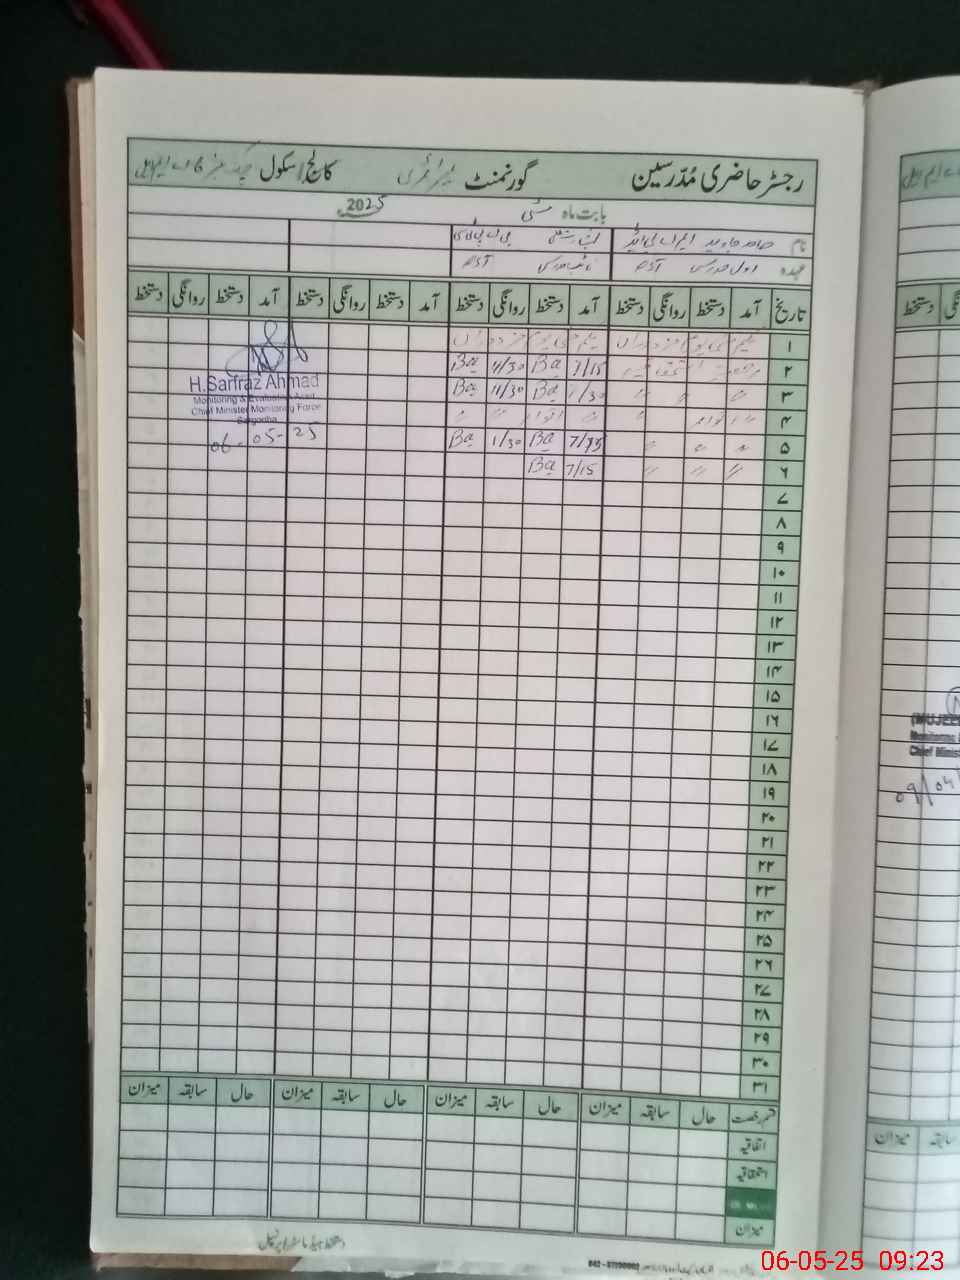 رجسٹر حاضری مُدّرسین گورنمنٹ کالج/سکول چک نمبر
بابت ماہ مئی 2025
نام
عہدہ اول مدرس
تاریخ آمد دستخط روانگی دستخط آمد دستخط روانگی دستخط آمد دستخط روانگی دستخط آمد دستخط روانگی دستخط
۱ یکم مئی یوم مزدوراں یکم مئی یوم مزدوراں
۲ رخصت 7/15 Ba 11/30 Ba
۳ " " " /30 Ba 11/30 Ba
۴ " اتوار " " اتوار " "
۵ " " " 7/15 Ba 1/30 Ba
۶ " " " 7/15 Ba
H.Sarfraz Ahmad
Monitoring & Evaluation Asstt
Chief Minister Monitoring Force
Sargodha
06-05-25
۷
۸
۹
۱۰
۱۱
۱۲
۱۳
۱۴
۱۵
۱۶
۱۷
۱۸
۱۹
۲۰
۲۱
۲۲
۲۳
۲۴
۲۵
۲۶
۲۷
۲۸
۲۹
۳۰
۳۱
قسم رخصت حال سابقہ میزان حال سابقہ میزان حال سابقہ میزان حال سابقہ میزان
اتفاقیہ
استحقاقیہ
میزان
دستخط ہیڈ ماسٹر/پرنسپل
دستخط
(MUJEE
Monitoring
Chief Minist
09/04/
میزان سابقہ
06-05-25 09:23